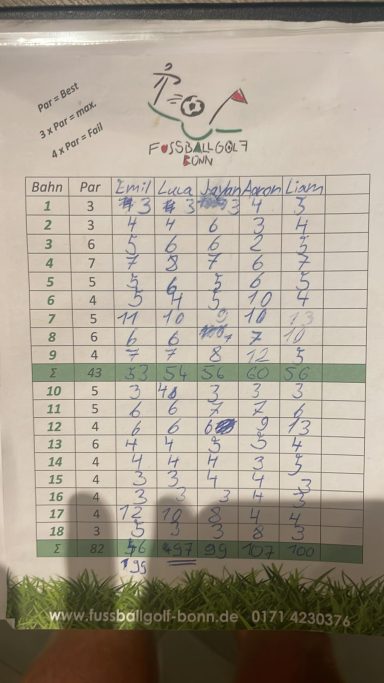 Par = Best
3 x Par = max.
4 x Par = Fail
FUSSBALLGOLF
BONN
Bahn Par Emil Luca Jayan Aaron Liam
1 3 3 3 3 4 3
2 3 4 4 6 3 4
3 6 5 6 6 2 5
4 7 7 8 7 6 7
5 5 5 6 5 6 5
6 4 5 4 5 10 4
7 5 11 10 9 10 13
8 6 6 6 7 7 10
9 4 7 7 8 12 5
Σ 43 53 54 56 60 56
10 5 3 4 3 3 3
11 5 6 6 7 7 6
12 4 6 6 6 9 13
13 6 4 4 5 5 4
14 4 4 4 4 3 5
15 4 3 3 4 4 3
16 4 3 3 3 4 3
17 4 12 10 8 4 4
18 3 5 3 3 8 3
Σ 82 97 99 107 100
199
www.fussballgolf-bonn.de 0171 4230376